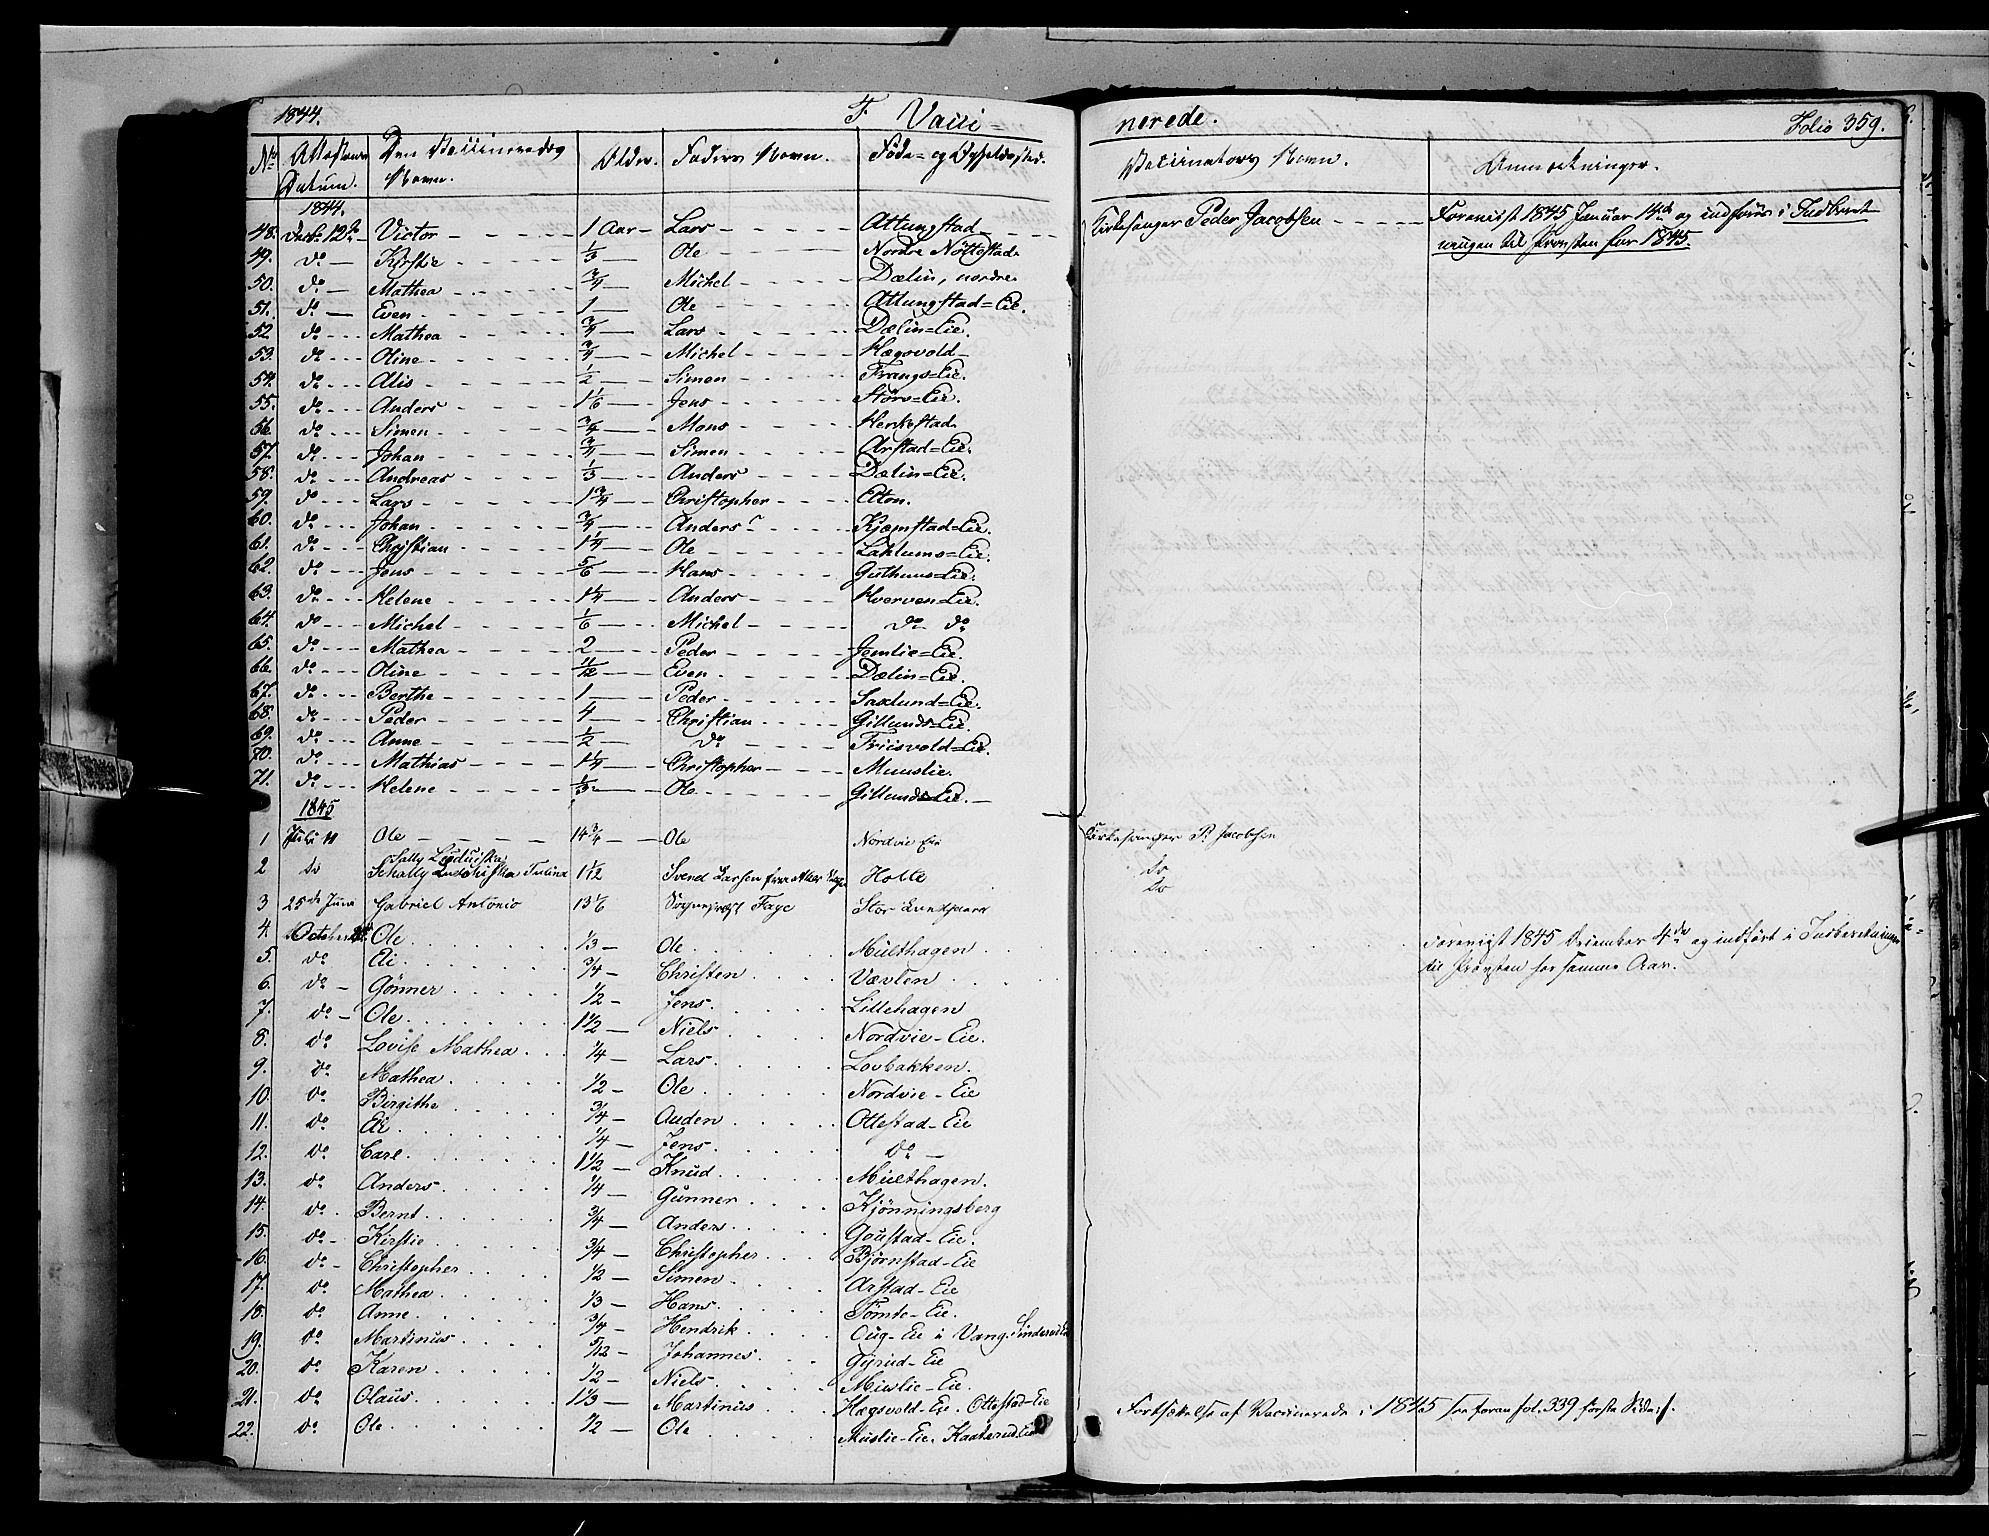 1844. F. Vacci=
nerede. Folio 359.
No Attestens Datum. Den Vaccineredes Navn. Alder. Faders Navn. Føde- og Opholdssted. Vaccinators Navn. Anmærkninger.
1844.
48. Decbr 12te Victor 1 Aar Lars Attungstad Kirkesanger Peder Jacobsen Forevist 1845 Januar 14de og indførte i Indberet-
ningen til Provsten for 1845.
49. do Kirstie 1/3 Ole Nordre Nöttestad
50. do Mathea 3/4 Michel Dælin, nordre
51. do Even 1 Ole Attungstad=Eie.
52 do Mathea 3/4 Lars Dælin=Eie.
53. do Oline 3/4 Michel Hægsvold
54. do Alis 1/2 Simen Frangs=Eie.
55. do Anders 1 1/6 Jens Störs=Eie.
56. do Simen 3/4 Mons Herkestad
57. do Johan 3/4 Simen Arstad=Eie.
58. do Andreas 1/3 Anders Dælin=Eie.
59. do Lars 1 3/4 Christopher Elton.
60. do Johan 3/4 Anders Kjemstad=Eie.
61. do Christian 1 1/4 Ole Laklums=Eie.
62. do Jens 5/6 Hans Guthuus=Eie.
63. do Helene 1 1/4 Anders Hverven=Eie.
64. do Michel 1/6 Michel do do
65. do Mathea 2 Peder Jemlie=Eie.
66. do Oline 11/12 Even Dælin=Eie.
67. do Berthe 1 Peder Saxlund=Eie.
68. do Peder 4 Christian Gillunds=Eie.
69. do Anne 1/2 do Friisvold=Eie.
70. do Mathias 1 1/4 Christopher Muuslie.
71. do Helene 1/3 Ole Gillunds=Eie.
1845
1 Juli 11 Ole 14 3/4 Ole Nordvie Eie Kirkesanger P. Jacobsen
Sally Ludviska
2 do Schally Ludviska Tulina 1 1/12 Svend Larsen fra Aker Holte do
3 25de Juni Gabriel Antonio 13 1/6 Sognepræst Faye Stor Lundgaard do
4. October Ole 1/3 Ole Mülthagen Forevigst 1845 December 4de og indført i Indberetningen
til Provsten for samme Aar.
5. do Eli 3/4 Christen Værlen
6. do Gønner 1/2 Jens Lillehagen
7. do Ole 1 1/2 Niels Nordvie-Eie.
8. do Lovise Mathea 1/4 Lars Lovbakken.
9. do Mathea 1/2 Ole Nordvie-Eie
10. do Birgithe 3/4 Auden Ottestad-Eie
11. do Eli 1/4 Jens do
12. do Carl 1 1/2 Knud Mülthagen.
13. do Anders 1/4 Günner Kjönningsberg
14. do Bernt 3/4 Anders Goustad-Eie
15. do Kirstie 3/4 Christopher Bjørnstad-Eie
16. do Christopher 1/2 Simen Arstad-Eie
17. do Mathea 1/3 Hans Tömte-Eie.
18. do Anne 3/4 Hendrik Oug-Eie i Vang. Sinderud Eie
19. do Martinus 5/12 Johannes Gÿrud-Eie
20. do Karen 1/2 Niels Muslie-Eie.
21. do Olaus 1 1/3 Martinus Hægsvold-Eie. Ottestad-Eie
22. do Ole 1/2 Ole Muslie-Eie. Kaaterud Eie
Fortsættelse af Vaccinerede i 1845 see foran fol. 339 første Side.